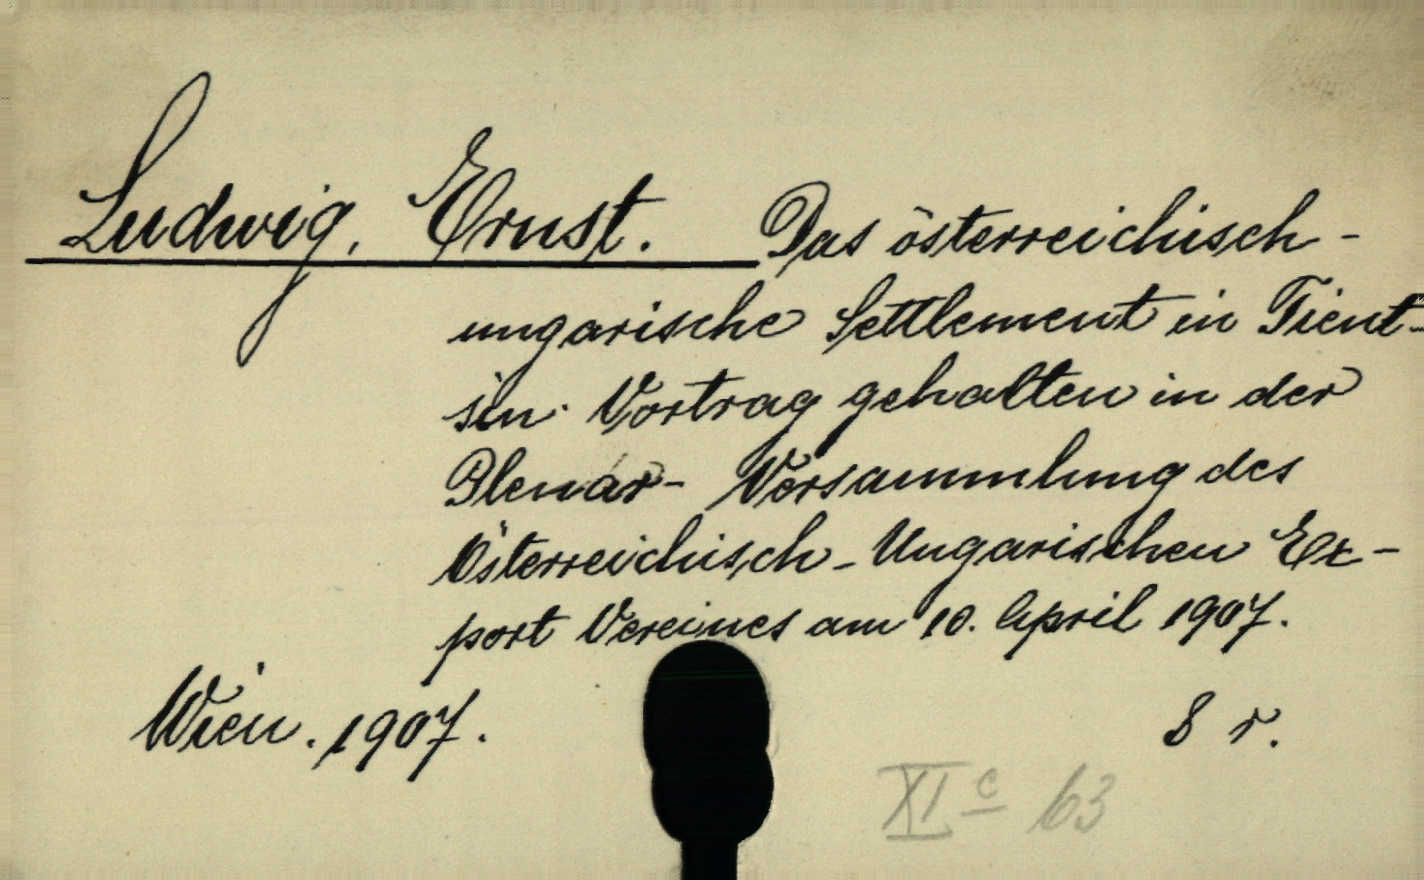 Ludwig, Ernst. Das österreichisch-
ungarische Settlement in Tient-
sin. Vortrag gehalten in der
Plenár- Versammlung des
Österreichisch-Ungarischen Ex-
port Vereines am 10. April 1907.
Wien. 1907. 8 r.
XI c 63